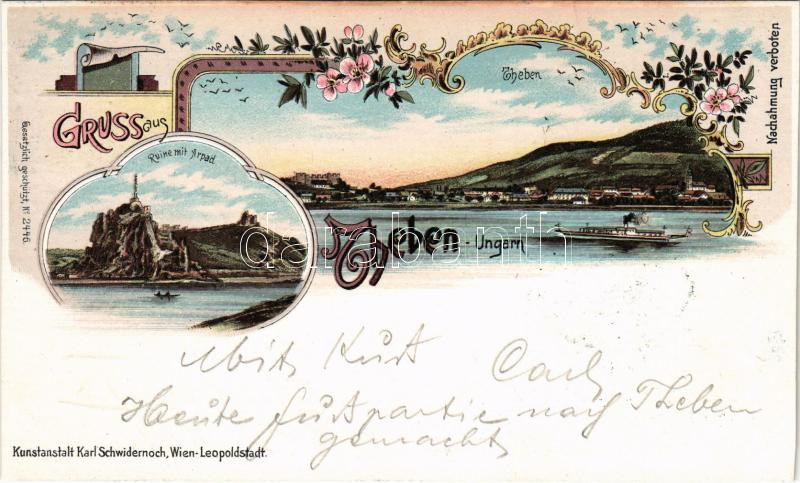 Gruss aus
Theben
Nachahmung verboten
Gesetzlich geschützt, Nº 2446.
Ruine mit Arpád
Theben - Ungarn
darabanth
Mit Kurt Carl
Heute Fusspartie nach Theben
gemacht
Kunstanstalt Karl Schwidernoch, Wien-Leopoldstadt.